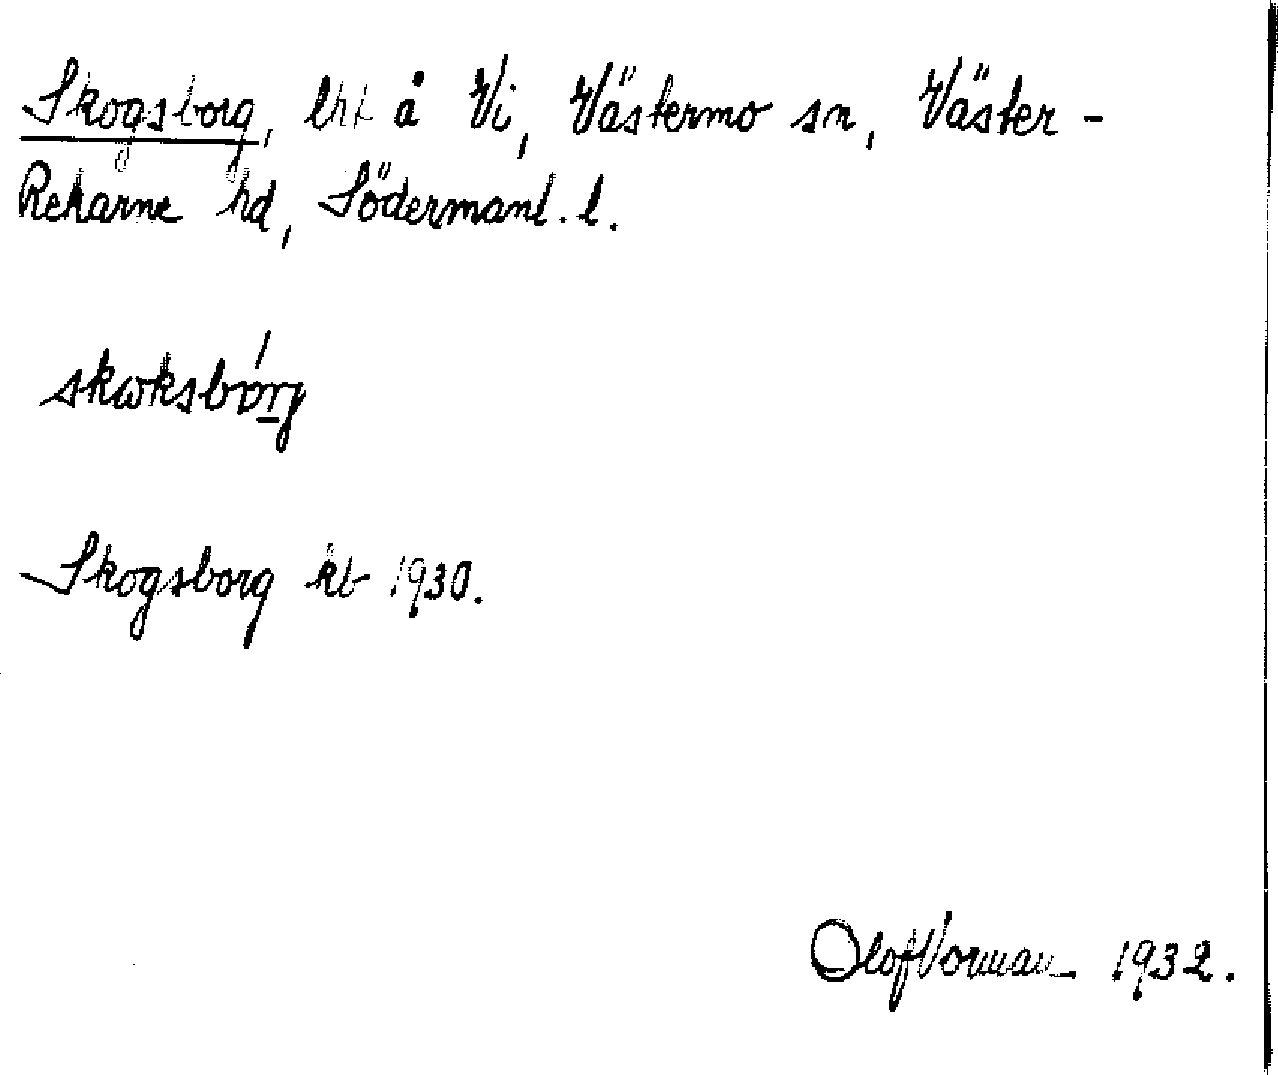 Skogsborg, lht å Vi, Västermo sn, Väster-
Rekarne hd, Södermanl. l.
skωksbórj
Skogsborg kb 1930.
Olof Vorman 1932.